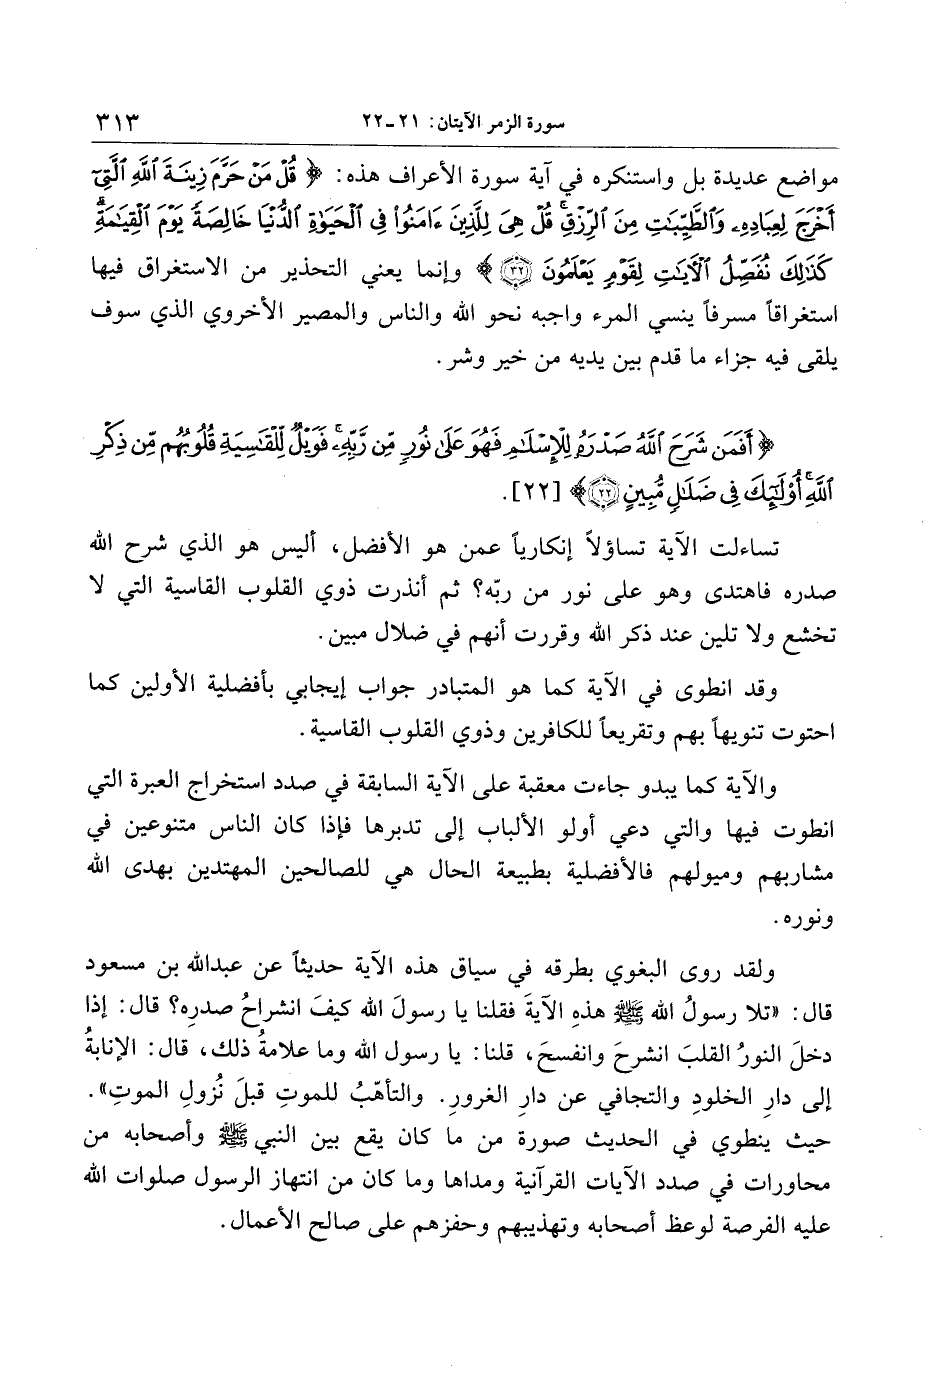 سورة الزمر الآيتان: ٢١-٢٢ ٣١٣
مواضع عديدة بل واستنكره في آية سورة الأعراف هذه: ﴿ قُلْ مَنْ حَرَّمَ زِينَةَ ٱللَّهِ ٱلَّتِىٓ
أَخْرَجَ لِعِبَادِهِۦ وَٱلطَّيِّبَٰتِ مِنَ ٱلرِّزْقِۚ قُلْ هِىَ لِلَّذِينَ ءَامَنُوا۟ فِى ٱلْحَيَوٰةِ ٱلدُّنْيَا خَالِصَةً يَوْمَ ٱلْقِيَٰمَةِۗ
كَذَٰلِكَ نُفَصِّلُ ٱلْءَايَٰتِ لِقَوْمٍ يَعْلَمُونَ ٣٢ ﴾ وإنما يعني التحذير من الاستغراق فيها
استغراقاً مسرفاً ينسي المرء واجبه نحو الله والناس والمصير الأخروي الذي سوف
يلقى فيه جزاء ما قدم بين يديه من خير وشر.
﴿ أَفَمَن شَرَحَ ٱللَّهُ صَدْرَهُۥ لِلْإِسْلَٰمِ فَهُوَ عَلَىٰ نُورٍ مِّن رَّبِّهِۦۚ فَوَيْلٌ لِّلْقَٰسِيَةِ قُلُوبُهُم مِّن ذِكْرِ
ٱللَّهِۚ أُو۟لَٰٓئِكَ فِى ضَلَٰلٍ مُّبِينٍ ٢٢﴾ [٢٢].
تساءلت الآية تساؤلاً إنكارياً عمن هو الأفضل، أليس هو الذي شرح الله
صدره فاهتدى وهو على نور من ربّه؟ ثم أنذرت ذوي القلوب القاسية التي لا
تخشع ولا تلين عند ذكر الله وقررت أنهم في ضلال مبين.
وقد انطوى في الآية كما هو المتبادر جواب إيجابي بأفضلية الأولين كما
احتوت تنويهاً بهم وتقريعاً للكافرين وذوي القلوب القاسية.
والآية كما يبدو جاءت معقبة على الآية السابقة في صدد استخراج العبرة التي
انطوت فيها والتي دعي أولو الألباب إلى تدبرها فإذا كان الناس متنوعين في
مشاربهم وميولهم فالأفضلية بطبيعة الحال هي للصالحين المهتدين بهدى الله
ونوره.
ولقد روى البغوي بطرقه في سياق هذه الآية حديثاً عن عبدالله بن مسعود
قال: «تلا رسولُ الله ﷺ هذهِ الآيةَ فقلنا يا رسولَ الله كيفَ انشراحُ صدرِه؟ قال: إذا
دخلَ النورُ القلبَ انشرحَ وانفسحَ، قلنا: يا رسول الله وما علامةُ ذلك، قال: الإنابةُ
إلى دارِ الخلودِ والتجافي عن دارِ الغرورِ. والتأهّبُ للموتِ قبلَ نُزولِ الموتِ».
حيث ينطوي في الحديث صورة من ما كان يقع بين النبي ﷺ وأصحابه من
محاورات في صدد الآيات القرآنية ومداها وما كان من انتهاز الرسول صلوات الله
عليه الفرصة لوعظ أصحابه وتهذيبهم وحفزهم على صالح الأعمال.